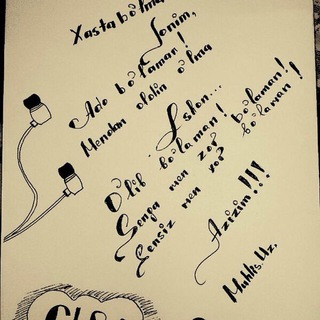 Xasta bo'lma,
Jonim,
Ado bo'laman!
Mendan oldin o'lma
Ishon...
O'lib bo'laman!
Senga men zor bo'laman!
Sensiz men xor bo'laman!
Azizim!!!
Muhlis.Uz.